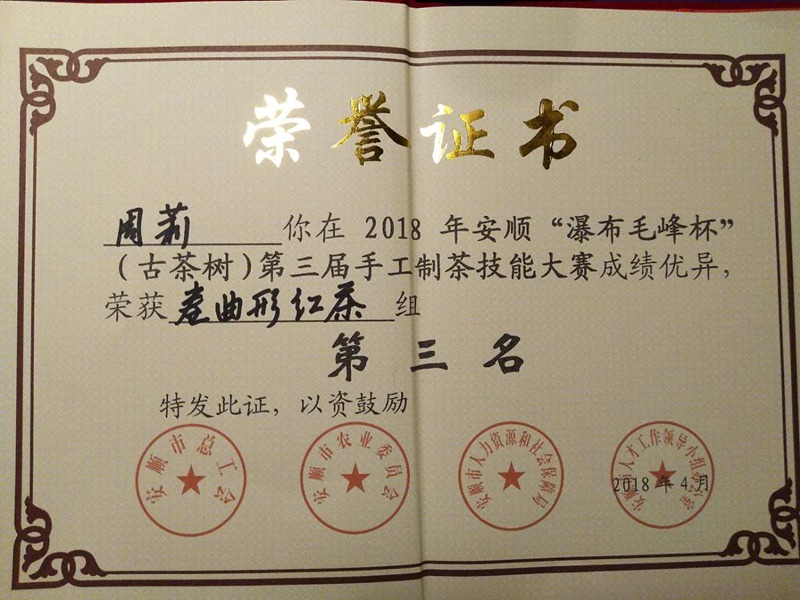 荣誉证书
周莉 你在 2018 年安顺“瀑布毛峰杯”
(古茶树)第三届手工制茶技能大赛成绩优异,
荣获卷曲形红茶 组
第三名
特发此证, 以资鼓励
安顺市总工会
安顺市农业委员会
安顺市人力资源和社会保障局
安顺市人才工作领导小组办公室
2018 年 4 月